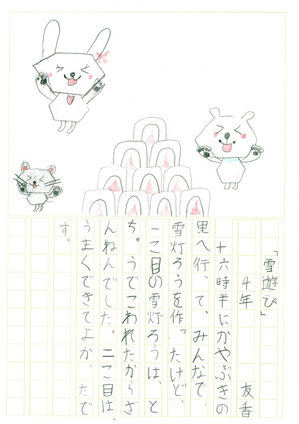 「雪遊び」
4年 友香
十六時半にかやぶきの
里へ行って、みんなで、
雪灯ろうを作ったけど、
一こ目の雪灯ろうは、と
ちゅうでこわれたからざ
んねんでした。二こ目は、
うまくできてよかったで
す。